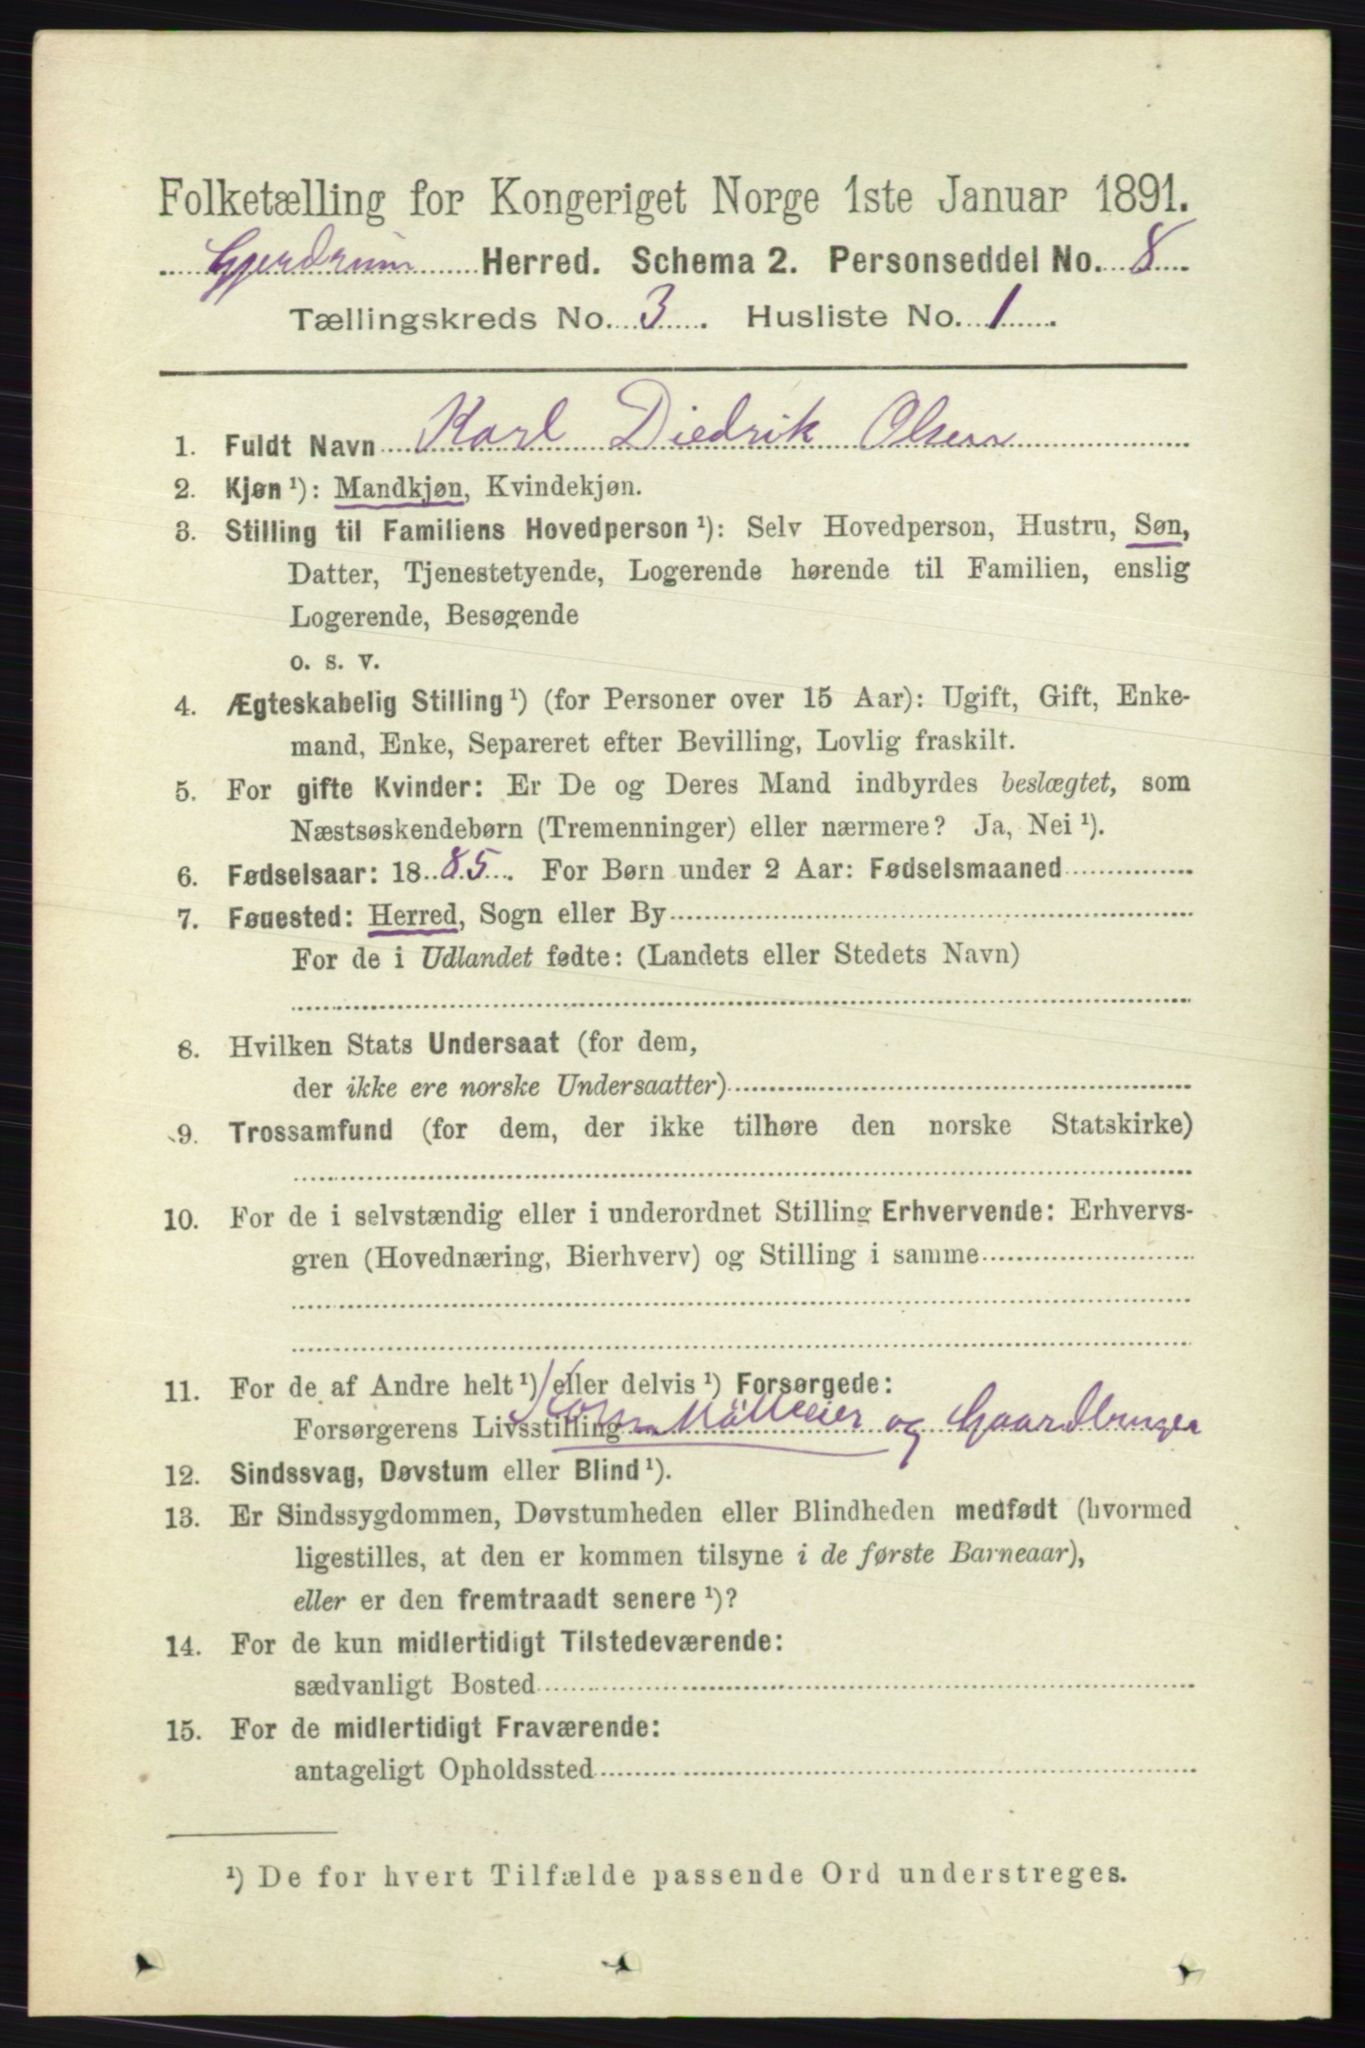 Folketælling for Kongeriget Norge 1ste Januar 1891.
Gjerdrum Herred. Schema 2. Personseddel No. 8
Tællingskreds No. 3. Husliste No. 1.
1. Fuldt Navn Karl Diedrik Olsen
2. Kjøn ¹): Mandkjøn, Kvindekjøn.
3. Stilling til Familiens Hovedperson ¹): Selv Hovedperson, Hustru, Søn,
Datter, Tjenestetyende, Logerende hørende til Familien, enslig
Logerende, Besøgende
o. s. v.
4. Ægteskabelig Stilling ¹) (for Personer over 15 Aar): Ugift, Gift, Enke-
mand, Enke, Separeret efter Bevilling, Lovlig fraskilt.
5. For gifte Kvinder: Er De og Deres Mand indbyrdes beslægtet, som
Næstsøskendebørn (Tremenninger) eller nærmere? Ja, Nei ¹).
6. Fødselsaar: 1885. For Børn under 2 Aar: Fødselsmaaned
7. Føuested: Herred, Sogn eller By
For de i Udlandet fødte: (Landets eller Stedets Navn)
8. Hvilken Stats Undersaat (for dem,
der ikke ere norske Undersaatter)
9. Trossamfund (for dem, der ikke tilhøre den norske Statskirke)
10. For de i selvstændig eller i underordnet Stilling Erhvervende: Erhvervs-
gren (Hovednæring, Bierhverv) og Stilling i samme
11. For de af Andre helt ¹) eller delvis ¹) Forsørgede:
Forsørgerens Livsstilling og Gaardbruger
12. Sindssvag, Døvstum eller Blind ¹).
13. Er Sindssygdommen, Døvstumheden eller Blindheden medfødt (hvormed
ligestilles, at den er kommen tilsyne i de første Barneaar),
eller er den fremtraadt senere ¹)?
14. For de kun midlertidigt Tilstedeværende:
sædvanligt Bosted
15. For de midlertidigt Fraværende:
antageligt Opholdssted
¹) De for hvert Tilfælde passende Ord understreges.